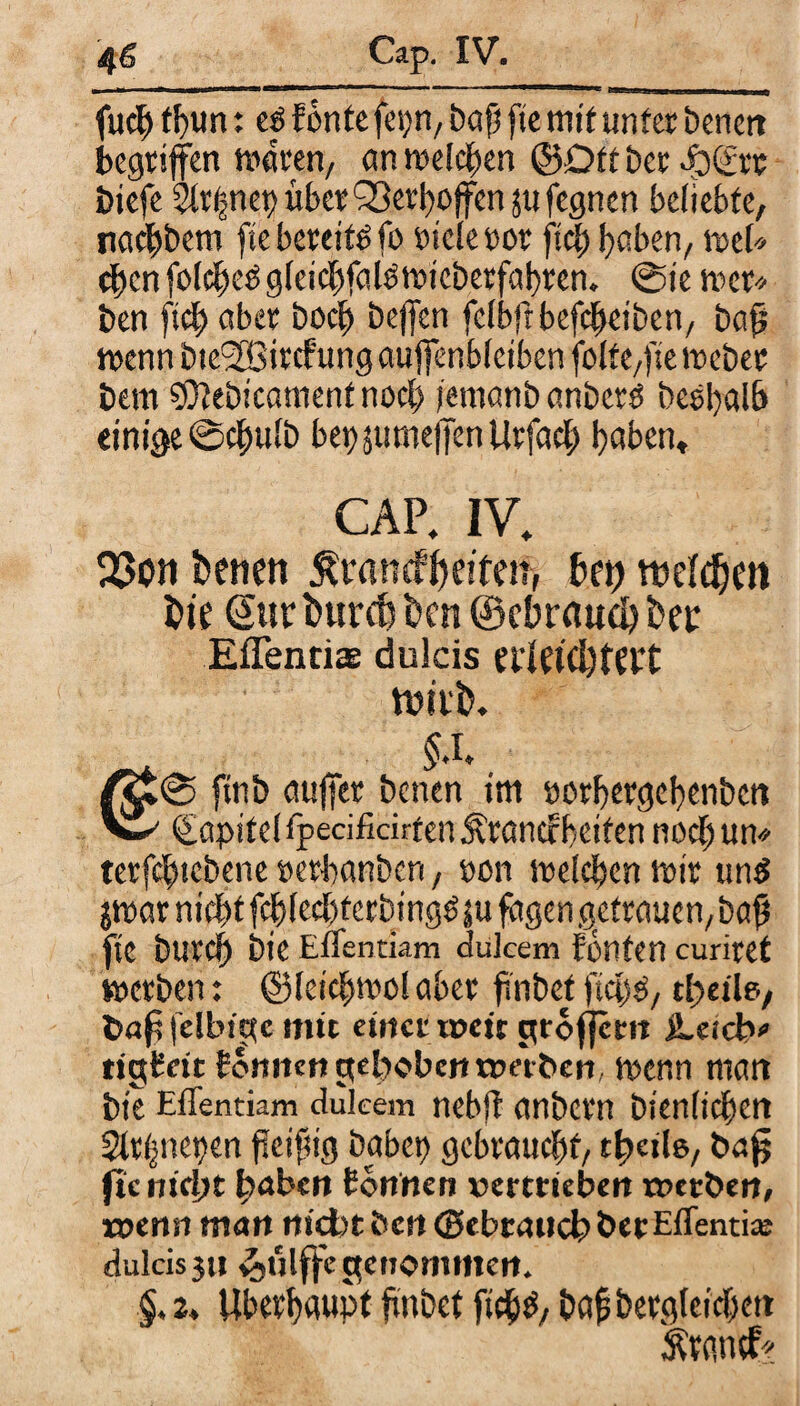 46 Cap. IV.
such thun: es könte seyn, daß sie mit unter denen
begriffen wären, an welchen GOtt der HErr
diese Artzney über Verhoffen zu segnen beliebte,
nachdem sie bereits so viele vor sich haben, wel-
chen solches gleichfals wiederfahren. Sie wer-
den sich aber doch dessen selbst bescheiden, daß
wenn die Wirckung aussenbleiben solte, sie weder
dem Medicament noch jemand anders deshalb
einige Schuld beyzumessen Ursach haben.
CAP. IV.
Von denen Kranckheiten, bey welchen
die Cur durch den Gebrauch der
Essentiæ dulcis erleichtert
wird.
§.I.
ES sind ausser denen im vorhergehenden
Capitel specificirten Kranckheiten noch un-
terschiedene verhanden, von welchen wir uns
zwar nicht schlechterdings zu sagen getrauen, daß
sie durch die Essentiam dulcem könten curiret
werden: Gleichwol aber findet sichs, theils,
daß selbige mit einer weit grössern Leich-
tigkeit können gehoben werden, wenn man
die Essentiam dulcem nebst andern dienlichen
Artzneyen fleißig dabey gebraucht, theils, daß
sie nicht haben können vertrieben werden,
wenn man nicht den Gebrauch der Essentiæ
dulcis zu Hülffe genommen.
§. 2. Uberhaupt findet sichs, daß dergleichen
Kranck-